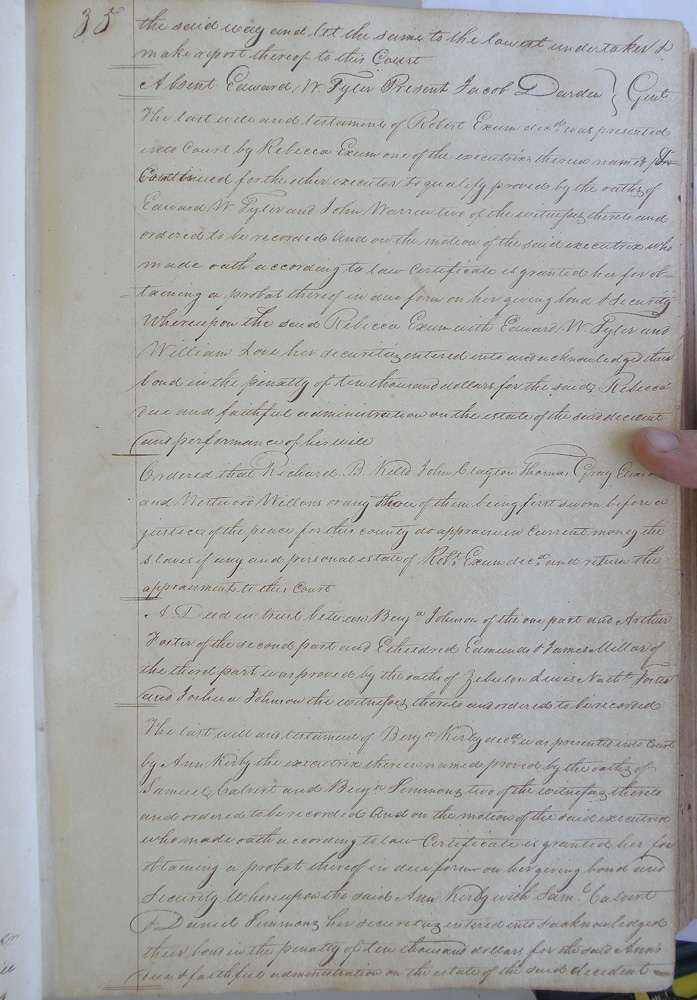 35
the said way and let the same to the lowest undertaker &
make report thereof to this Court
Absent Edward W. Tyler Present Jacob Darden } Gent
The last will and testament of Robert Exum decd. was presented
into Court by Rebecca Exum one of the executrix therein named
for the other executor to qualify proved by the oaths of
Edward W. Tyler and John Warren two of the witnesses thereto and
ordered to be recorded And on the motion of the said executrix who
made oath according to law Certificate is granted her for ob-
taining a probat thereof in due form on her giving bond & security
Whereupon the said Rebecca Exum with Edward W. Tyler and
William Love her securities entered into and acknowledged their
bond in the penalty of ten thousand dollars for the said Rebecca
true and faithful administration on the estate of the said decedent
and performance of his will
Ordered that Richard B Kello John Clayton Thomas Gray
and Wellons or any three of them being first sworn before a
justice of the peace for this county do appraise in current money the
slaves if any and personal estate of Robt. Exum decd. and return the
appraisment to this Court
A Deed in trust between Benja. Johnson of the one part and Arthur
Foster of the second part and Etheldred Edmunds & James Millar of
the third part was proved by the oaths of Zebulon Lewis Nathl. Foster
and Joshua Johnson the witnesses thereto and ordered to be recorded
The last will and testament of Benja. Kirby decd. was presented into Court
by Ann Kirby the executrix therein named proved by the oaths of
Samuel Calvert and Benja. Simmons two of the witnesses thereto
and ordered to be recorded And on the motion of the said executrix
who made oath according to law Certificate is granted her for
obtaining a probat thereof in due form on her giving bond and
security Whereupon the said Ann Kirby with Saml. Calvert
& Daniel Simmons her securities entered into & acknowledged
their bond in the penalty of ten thousand dollars for the said Ann's
true & faithful administration on the estate of the said decedent